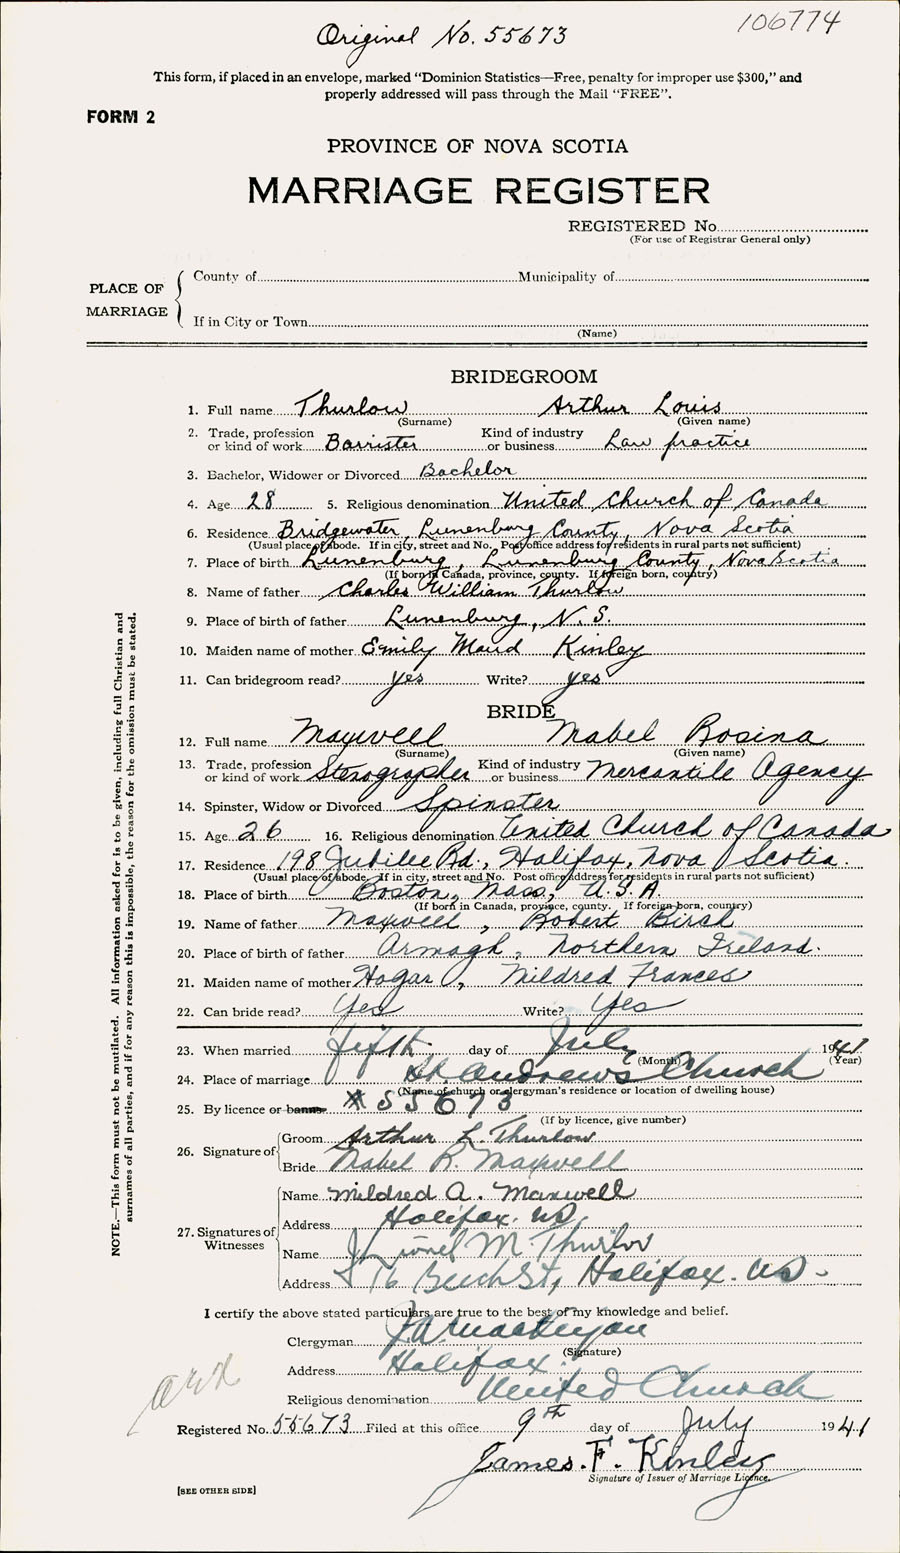 106774
Original No. 55673
This form, if placed in an envelope, marked "Dominion Statistics—Free, penalty for improper use $300," and
properly addressed will pass through the Mail "FREE".
FORM 2
PROVINCE OF NOVA SCOTIA
MARRIAGE REGISTER
REGISTERED No.
(For use of Registrar General only)
PLACE OF MARRIAGE
County of Municipality of
If in City or Town
(Name)
BRIDEGROOM
1. Full name Thurlow Arthur Louis
(Surname) (Given name)
2. Trade, profession or kind of work Barrister Kind of industry or business Law practice
3. Bachelor, Widower or Divorced Bachelor
4. Age 28 5. Religious denomination United Church of Canada
6. Residence Bridgewater, Lunenburg County, Nova Scotia
(Usual place of abode. If in city, street and No. Post office address for residents in rural parts not sufficient)
7. Place of birth Lunenburg, Lunenburg County, Nova Scotia
(If born in Canada, province, county. If foreign born, country)
8. Name of father Charles William Thurlow
9. Place of birth of father Lunenburg, N.S.
10. Maiden name of mother Emily Maud Kinley
11. Can bridegroom read? yes Write? yes
BRIDE
12. Full name Maxwell Mabel Rosina
(Surname) (Given name)
13. Trade, profession or kind of work Stenographer Kind of industry or business Mercantile Agency
14. Spinster, Widow or Divorced Spinster
15. Age 26 16. Religious denomination United Church of Canada
17. Residence 198 Jubilee Rd., Halifax, Nova Scotia.
(Usual place of abode. If in city, street and No. Post office address for residents in rural parts not sufficient)
18. Place of birth Boston, Mass, U.S.A
(If born in Canada, province, county. If foreign born, country)
19. Name of father Maxwell, Robert Birch
20. Place of birth of father Armagh, Northern Ireland.
21. Maiden name of mother Hogar, Mildred Frances
22. Can bride read? Yes Write? Yes
23. When married fifth day of July 1941
(Month) (Year)
24. Place of marriage St. Andrews Church
(Name of church or clergyman's residence or location of dwelling house)
25. By licence or banns #55673
(If by licence, give number)
26. Signature of
Groom Arthur L. Thurlow
Bride Mabel R. Maxwell
27. Signatures of Witnesses
Name Mildred A. Maxwell
Address Halifax. NS.
Name Lionel M Thurlow
Address 76 Beech St, Halifax. NS.
I certify the above stated particulars are true to the best of my knowledge and belief.
Clergyman
(Signature)
Address Halifax.
Religious denomination United Church
Registered No. 55673 Filed at this office 9th day of July 1941
James. F. Kinley
Signature of Issuer of Marriage Licence.
[SEE OTHER SIDE]
NOTE.—This form must not be mutilated. All information asked for is to be given, including full Christian and
surnames of all parties, and if for any reason this is impossible, the reason for the omission must be stated.